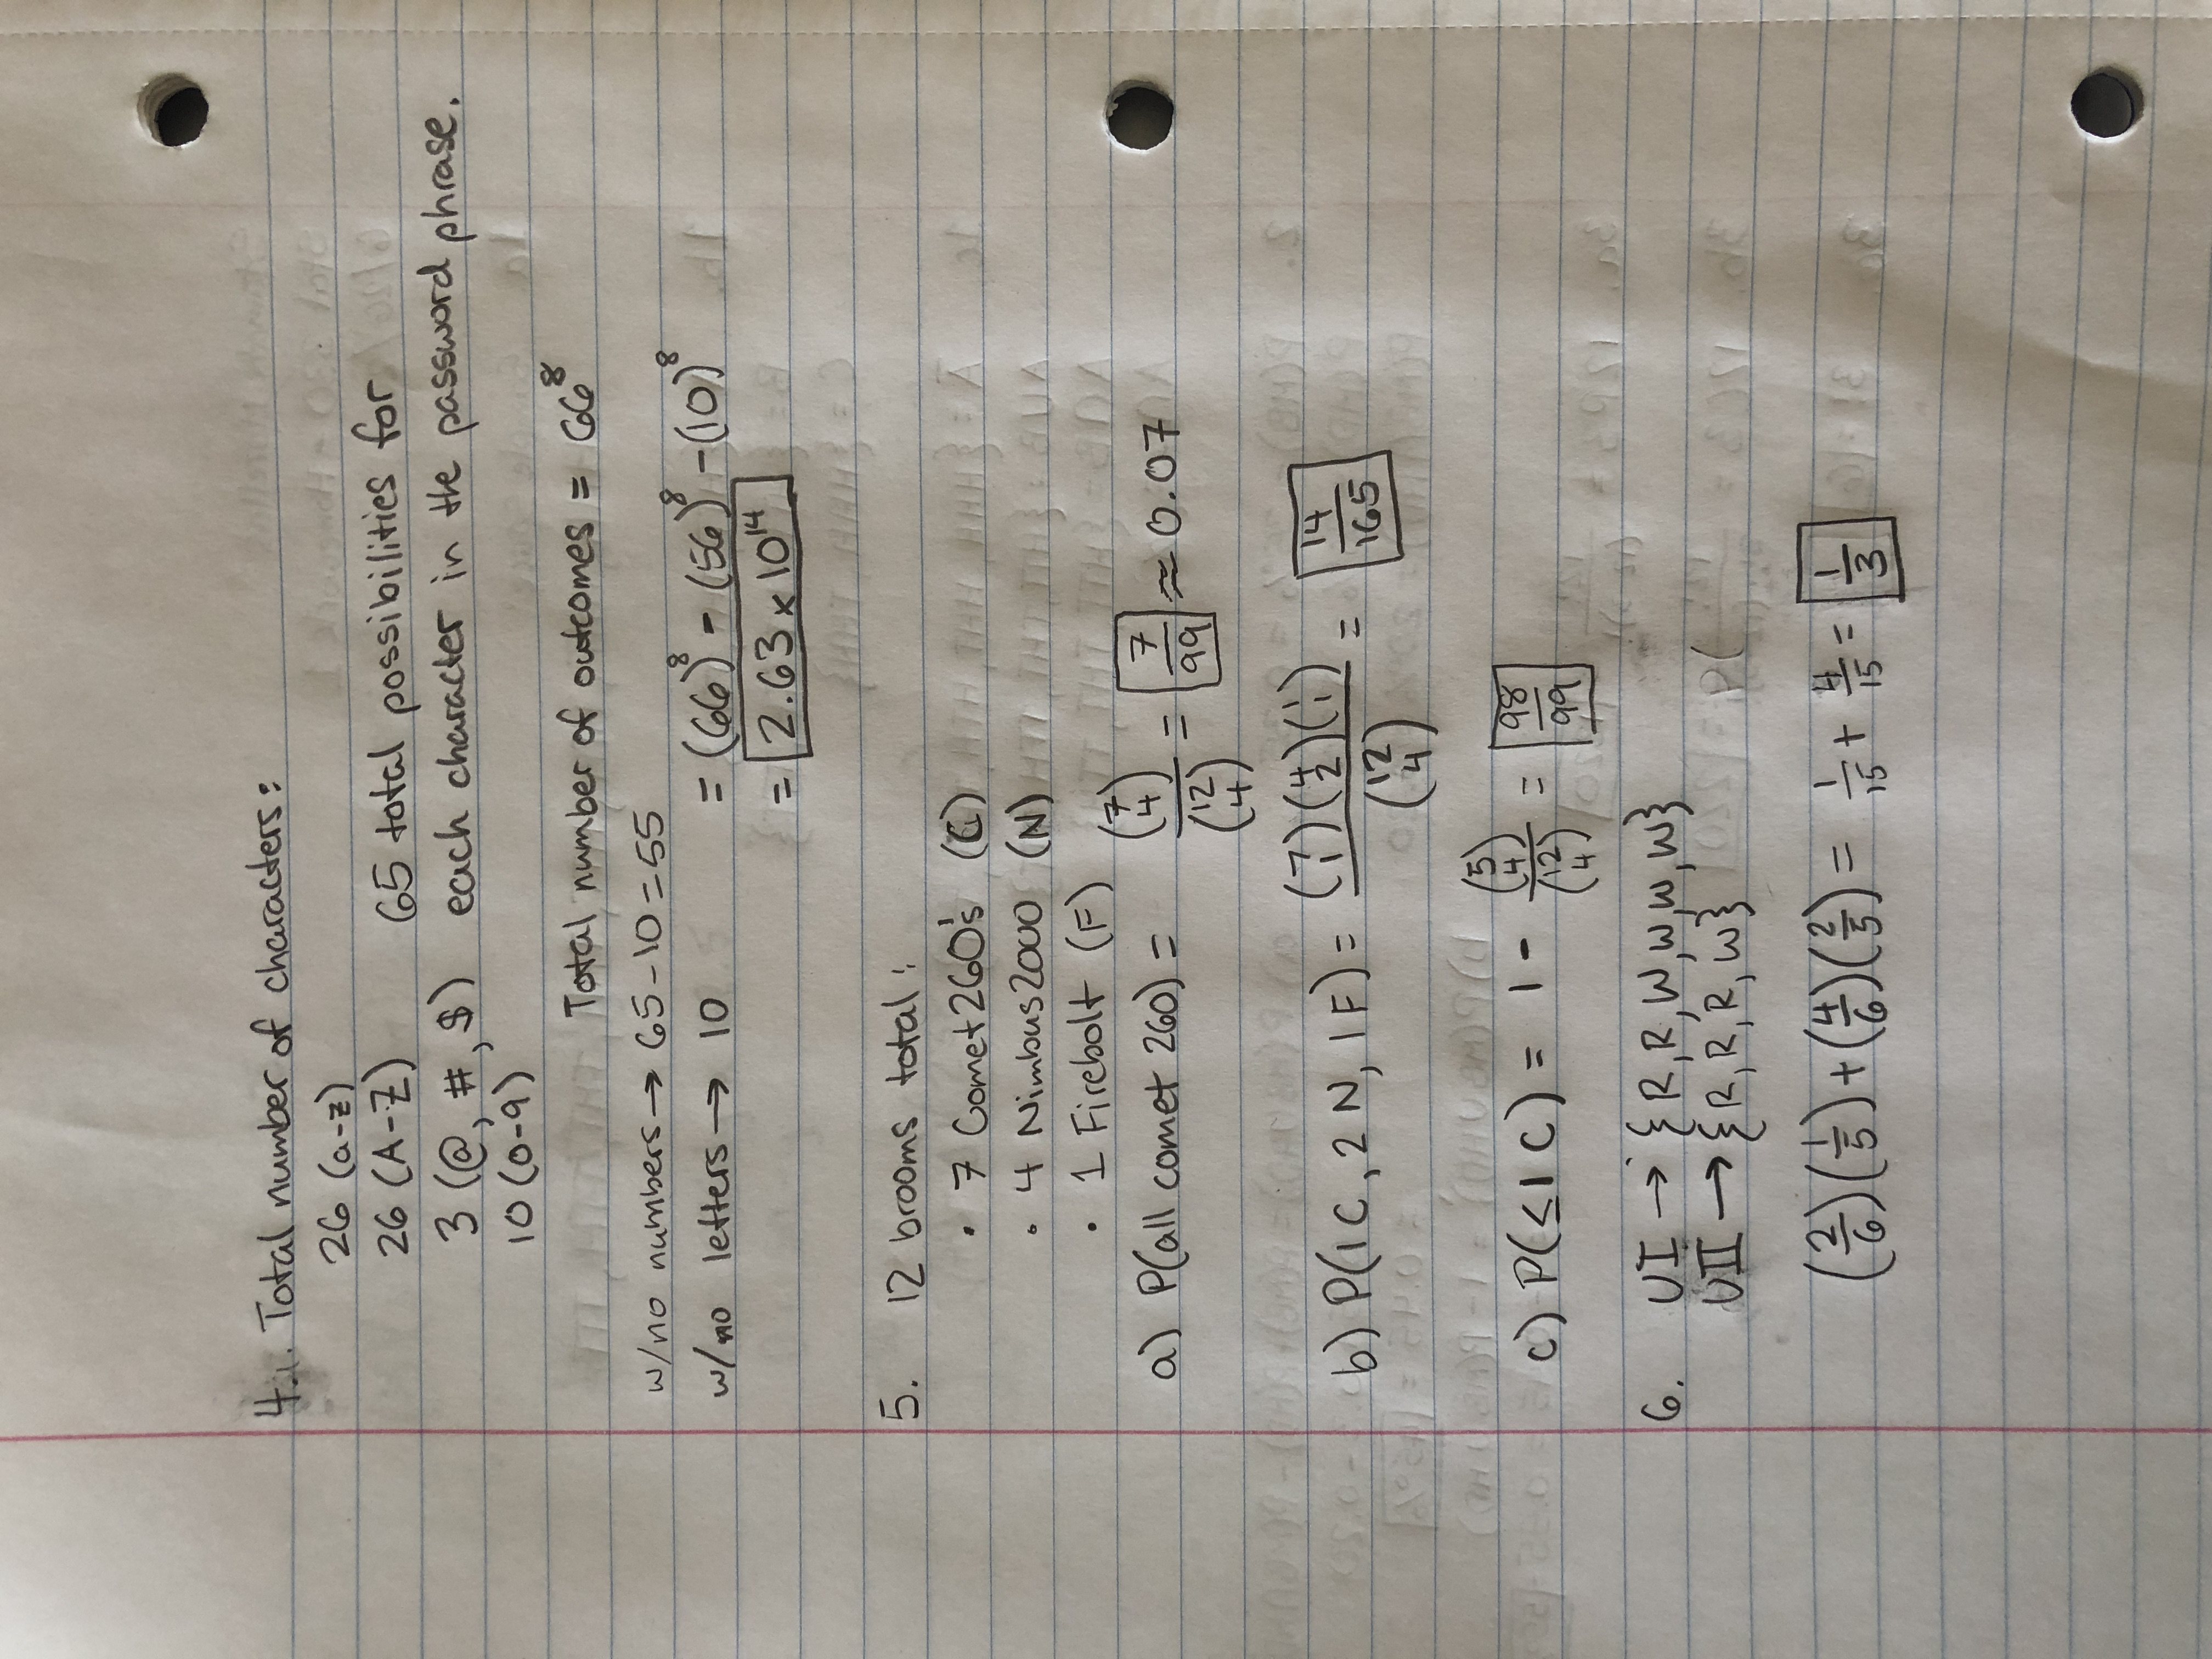 4. Total number of characters:
26 (a-z)
26 (A-Z) 65 total possibilities for
3 (@, #, $) each character in the password phrase.
10 (0-9)
Total number of outcomes = 66^8
w/no numbers → 65-10=55
w/no letters → 10 = (66)^8 - (56)^8 - (10)^8
= 2.63 x 10^14
5. 12 brooms total:
• 7 Comet260's (C)
• 4 Nimbus2000 (N)
• 1 Firebolt (F)
a) P(all comet 260) = (7 4)/(12 4) = 7/99 ≈ 0.07
b) P(1C, 2N, 1F) = (7 1)(4 2)(1 1)/(12 4) = 14/165
c) P(≤1 C) = 1 - (5 4)/(12 4) = 98/99
6. UI → {R,R,W,W,W,W}
UII → {R,R,R,W}
(2/6)(1/5)+(4/6)(2/5) = 1/15 + 4/15 = 1/3